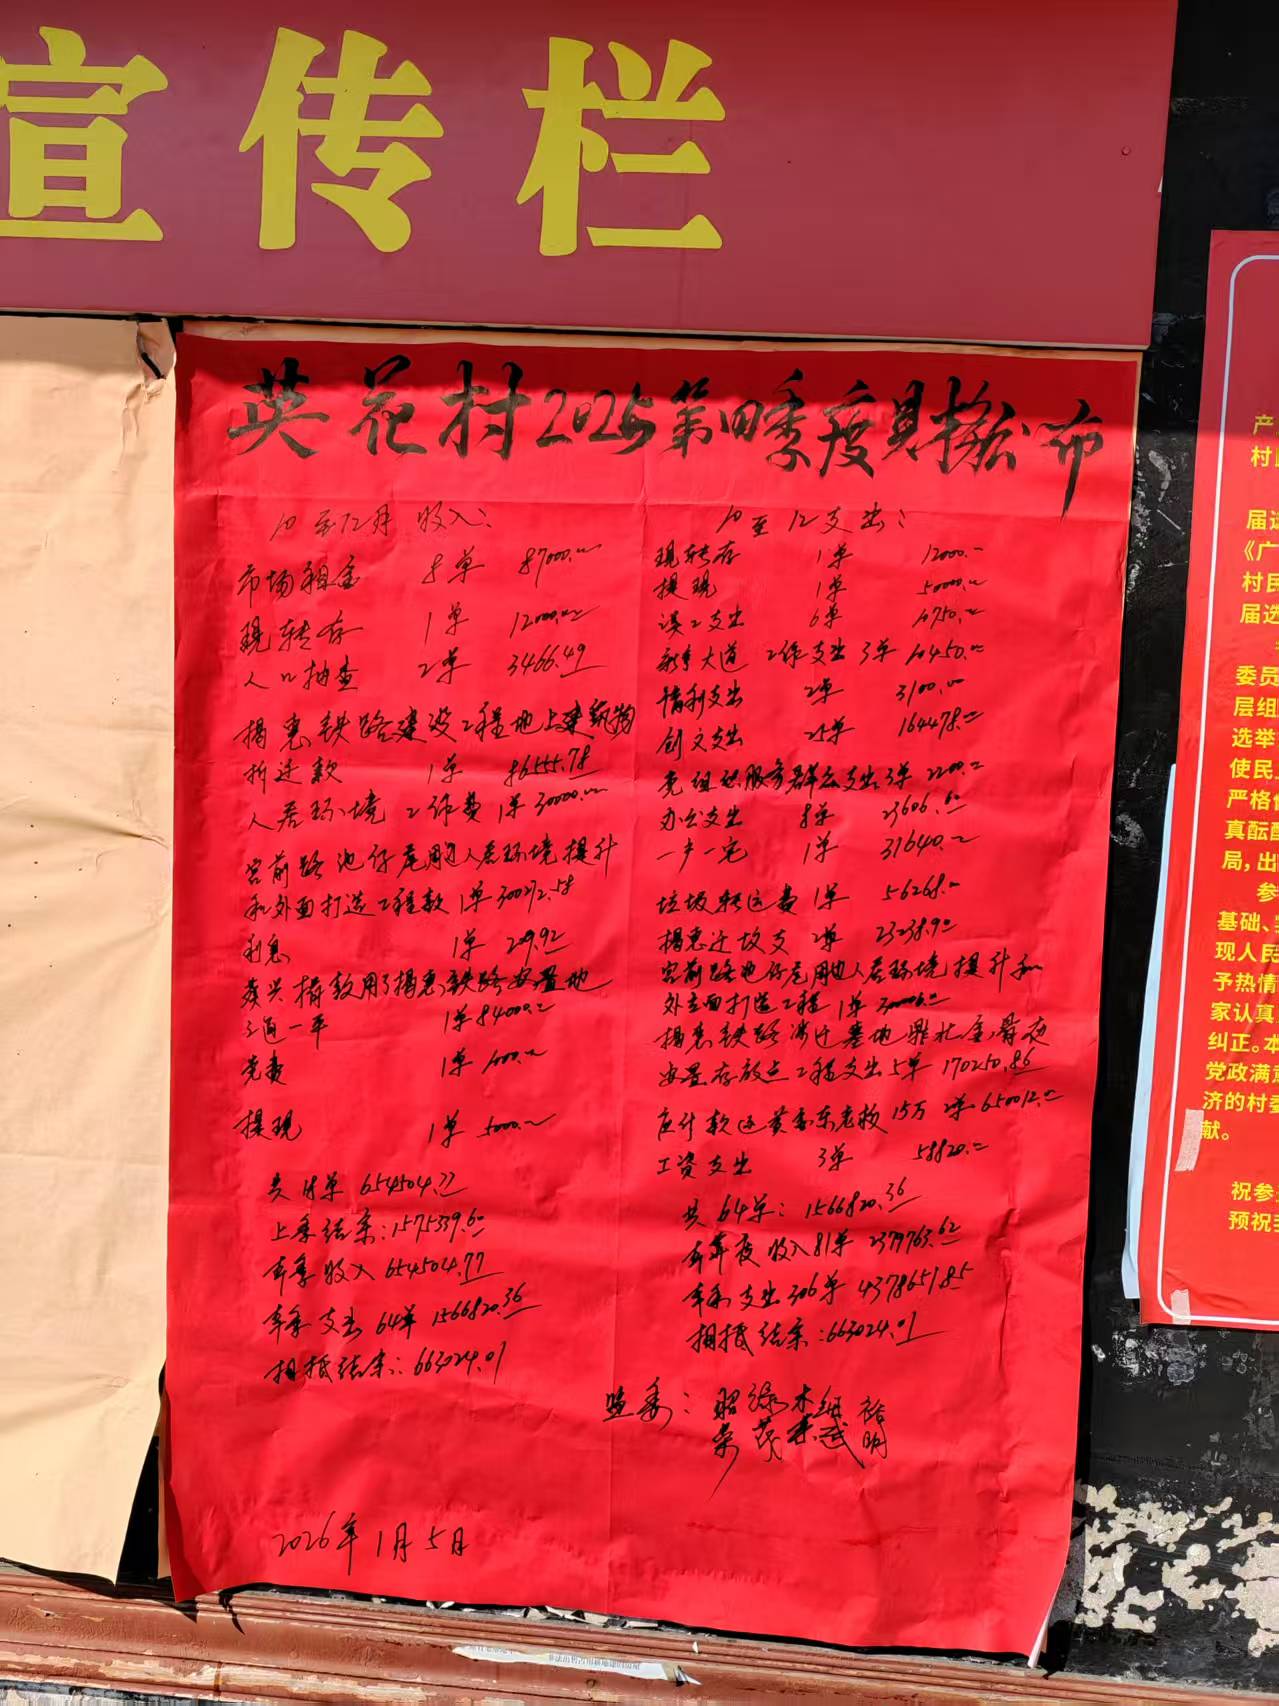 宣传栏
英花村2025第四季度财务公布
10至12月收入:
市场租金 8单 87000.00
现转存 1单 12000.00
人口抽查 2单 3466.49
揭惠铁路建设工程地上建筑物
拆迁款 1单 86555.78
人居环境工作费 1单 30000.00
宫前路池仔尾周边人居环境提升
和外面打造工程款 1单 300272.58
利息 1单 209.92
捐款用于揭惠铁路安置地
三通一平 1单 84000.00
党费 1单
提现 1单 5000.00
共18单 654504.77
上季结余:1575339.60
本季收入 654504.77
本季支出 64单 1566820.36
相抵结余:663024.01
10至12支出:
现转存 1单 12000.00
提现 1单 50000.00
误工支出 6单 10750.00
大道工作支出 3单 10450.00
福利支出 2单 3100.00
创文支出 25单 164478.00
党组织服务群众支出 3单 2200.00
办公支出 8单 23606.60
一户一宅 1单 31640.00
垃圾转运费 1单 56268.00
揭惠迁坟支 2单 23238.90
宫前路池仔尾周边人居环境提升和
外立面打造工程 1单 300006.00
揭惠铁路涉迁墓地
安置存放点工程支出 5单 170250.86
应付款还黄 东老板 15万 2单 650012.00
工资支出 3单 58820.00
共64单:1566820.36
本年度收入81单 2379763.62
本年支出306单 4378651.85
相抵结余:663024.01
监委:
2026年1月5日
产
村民
届选
《广
村民
届选
委员
层组
选举
使民
严格
真酝酿
局,出
参
基础、
现人民
予热情
家认真
纠正。本
党政满意
济的村委
献。
祝参
预祝